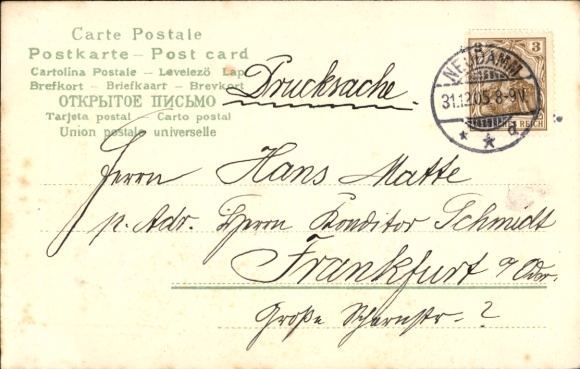 Carte Postale
Postkarte – Post card
Cartolina Postale – Levelező Lap
Brefkort – Briefkaart – Brevkort
ОТКРЫТОЕ ПИСЬМО
Tarjeta postal – Carto postal
Union postale universelle
Drucksache.
3
NEUDAMM
31.12.05 8-9V.
d.
REICH
Herrn Hans Matte
p. Adr. Herrn Konditor Schmidt
Frankfurt a/Oder.
Große Scharnstr. 2